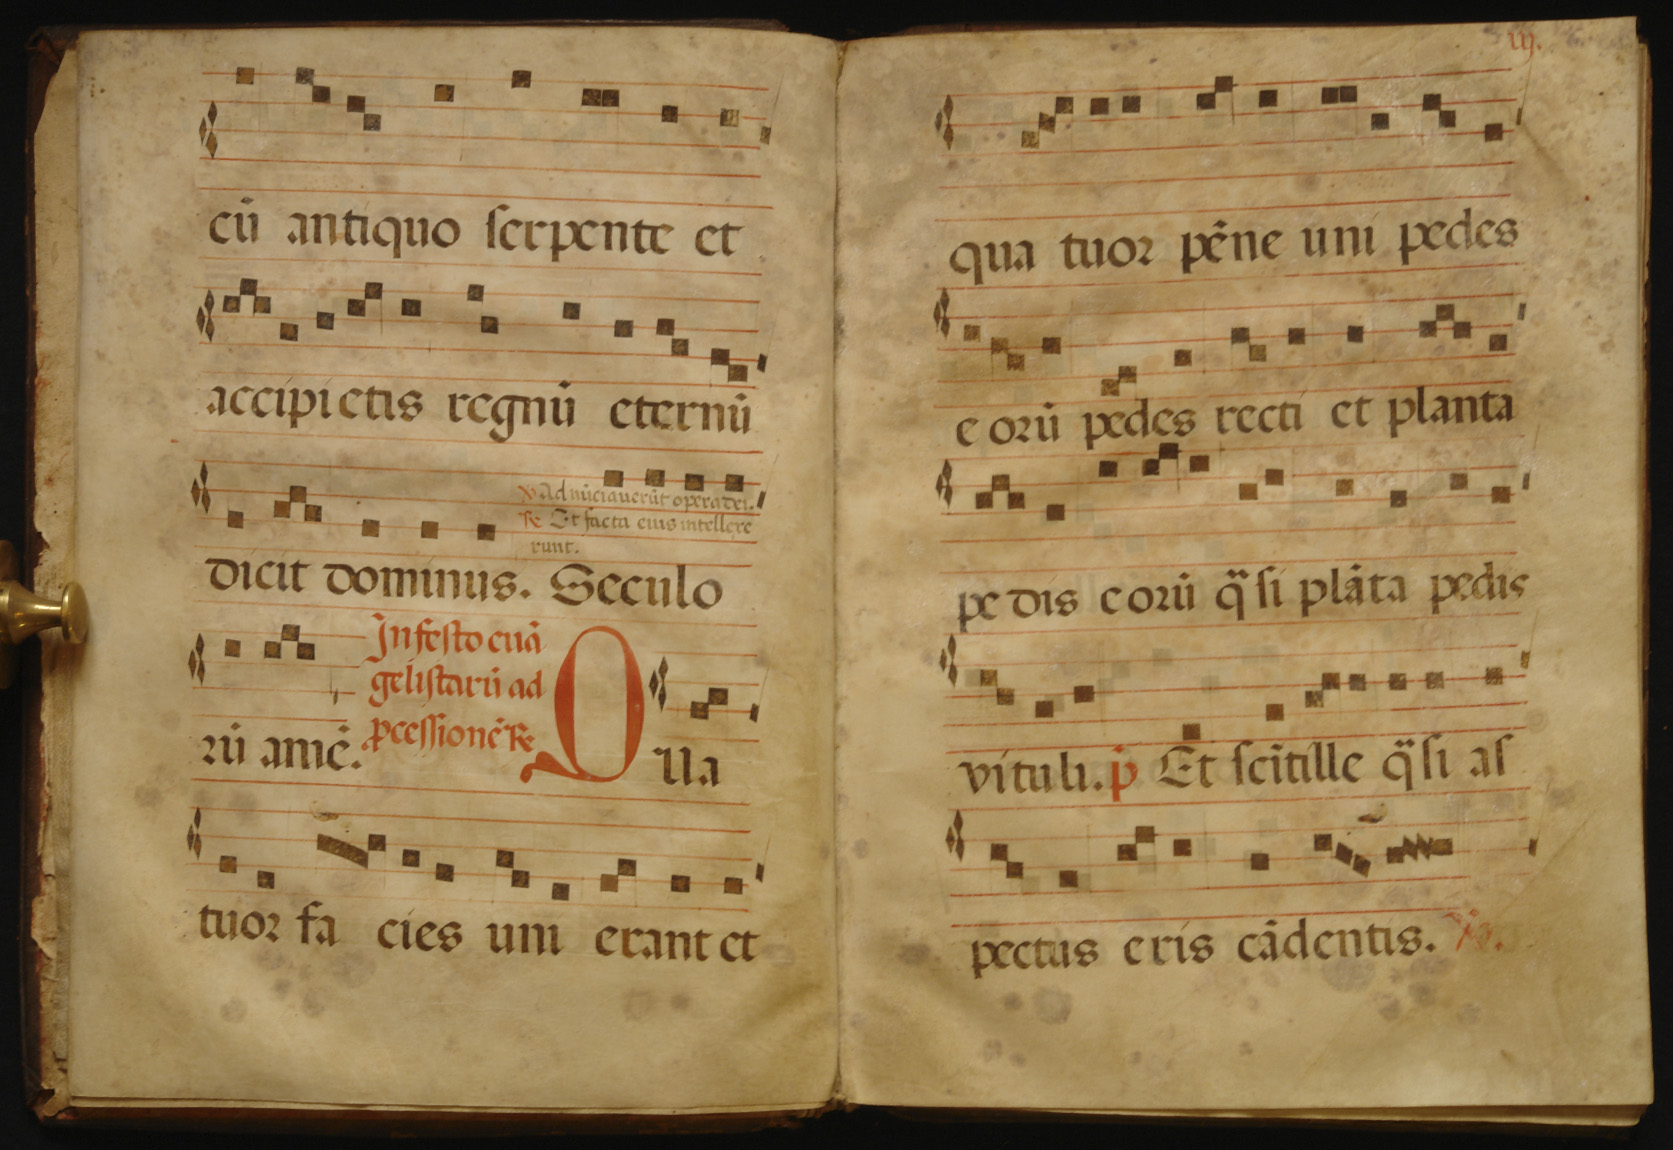 cū antiquo serpente et
accipietis regnū eternū
℣ Adnūciaverūt opera dei.
℟ Et facta eius intellexe
runt.
dicit dominus. Seculo
In festo euā
gelistarū ad
ꝓcessionē ℟
rū amē. Q Illa
tuor fa cies uni erant et
iij.
qua tuor pēne uni pedes
e orū pedes recti et planta
pe dis eorū q̄si plāta pedis
vituli. p Et scītille q̄si as
pectus eris cādentis. ℣.